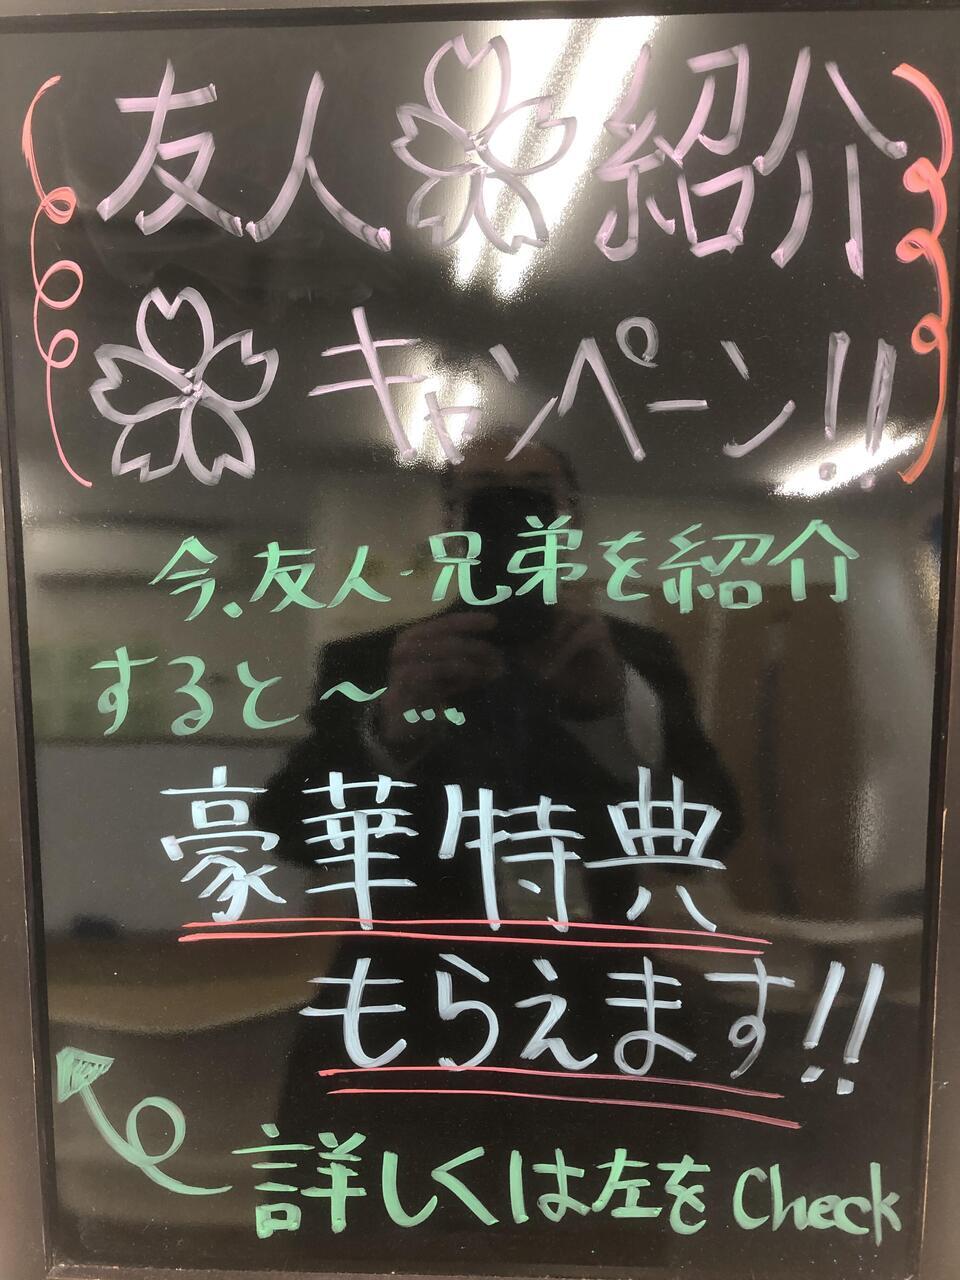 友人紹介
キャンペーン!!
今、友人・兄弟を紹介
すると〜...
豪華特典
もらえます!!
詳しくは左をCheck